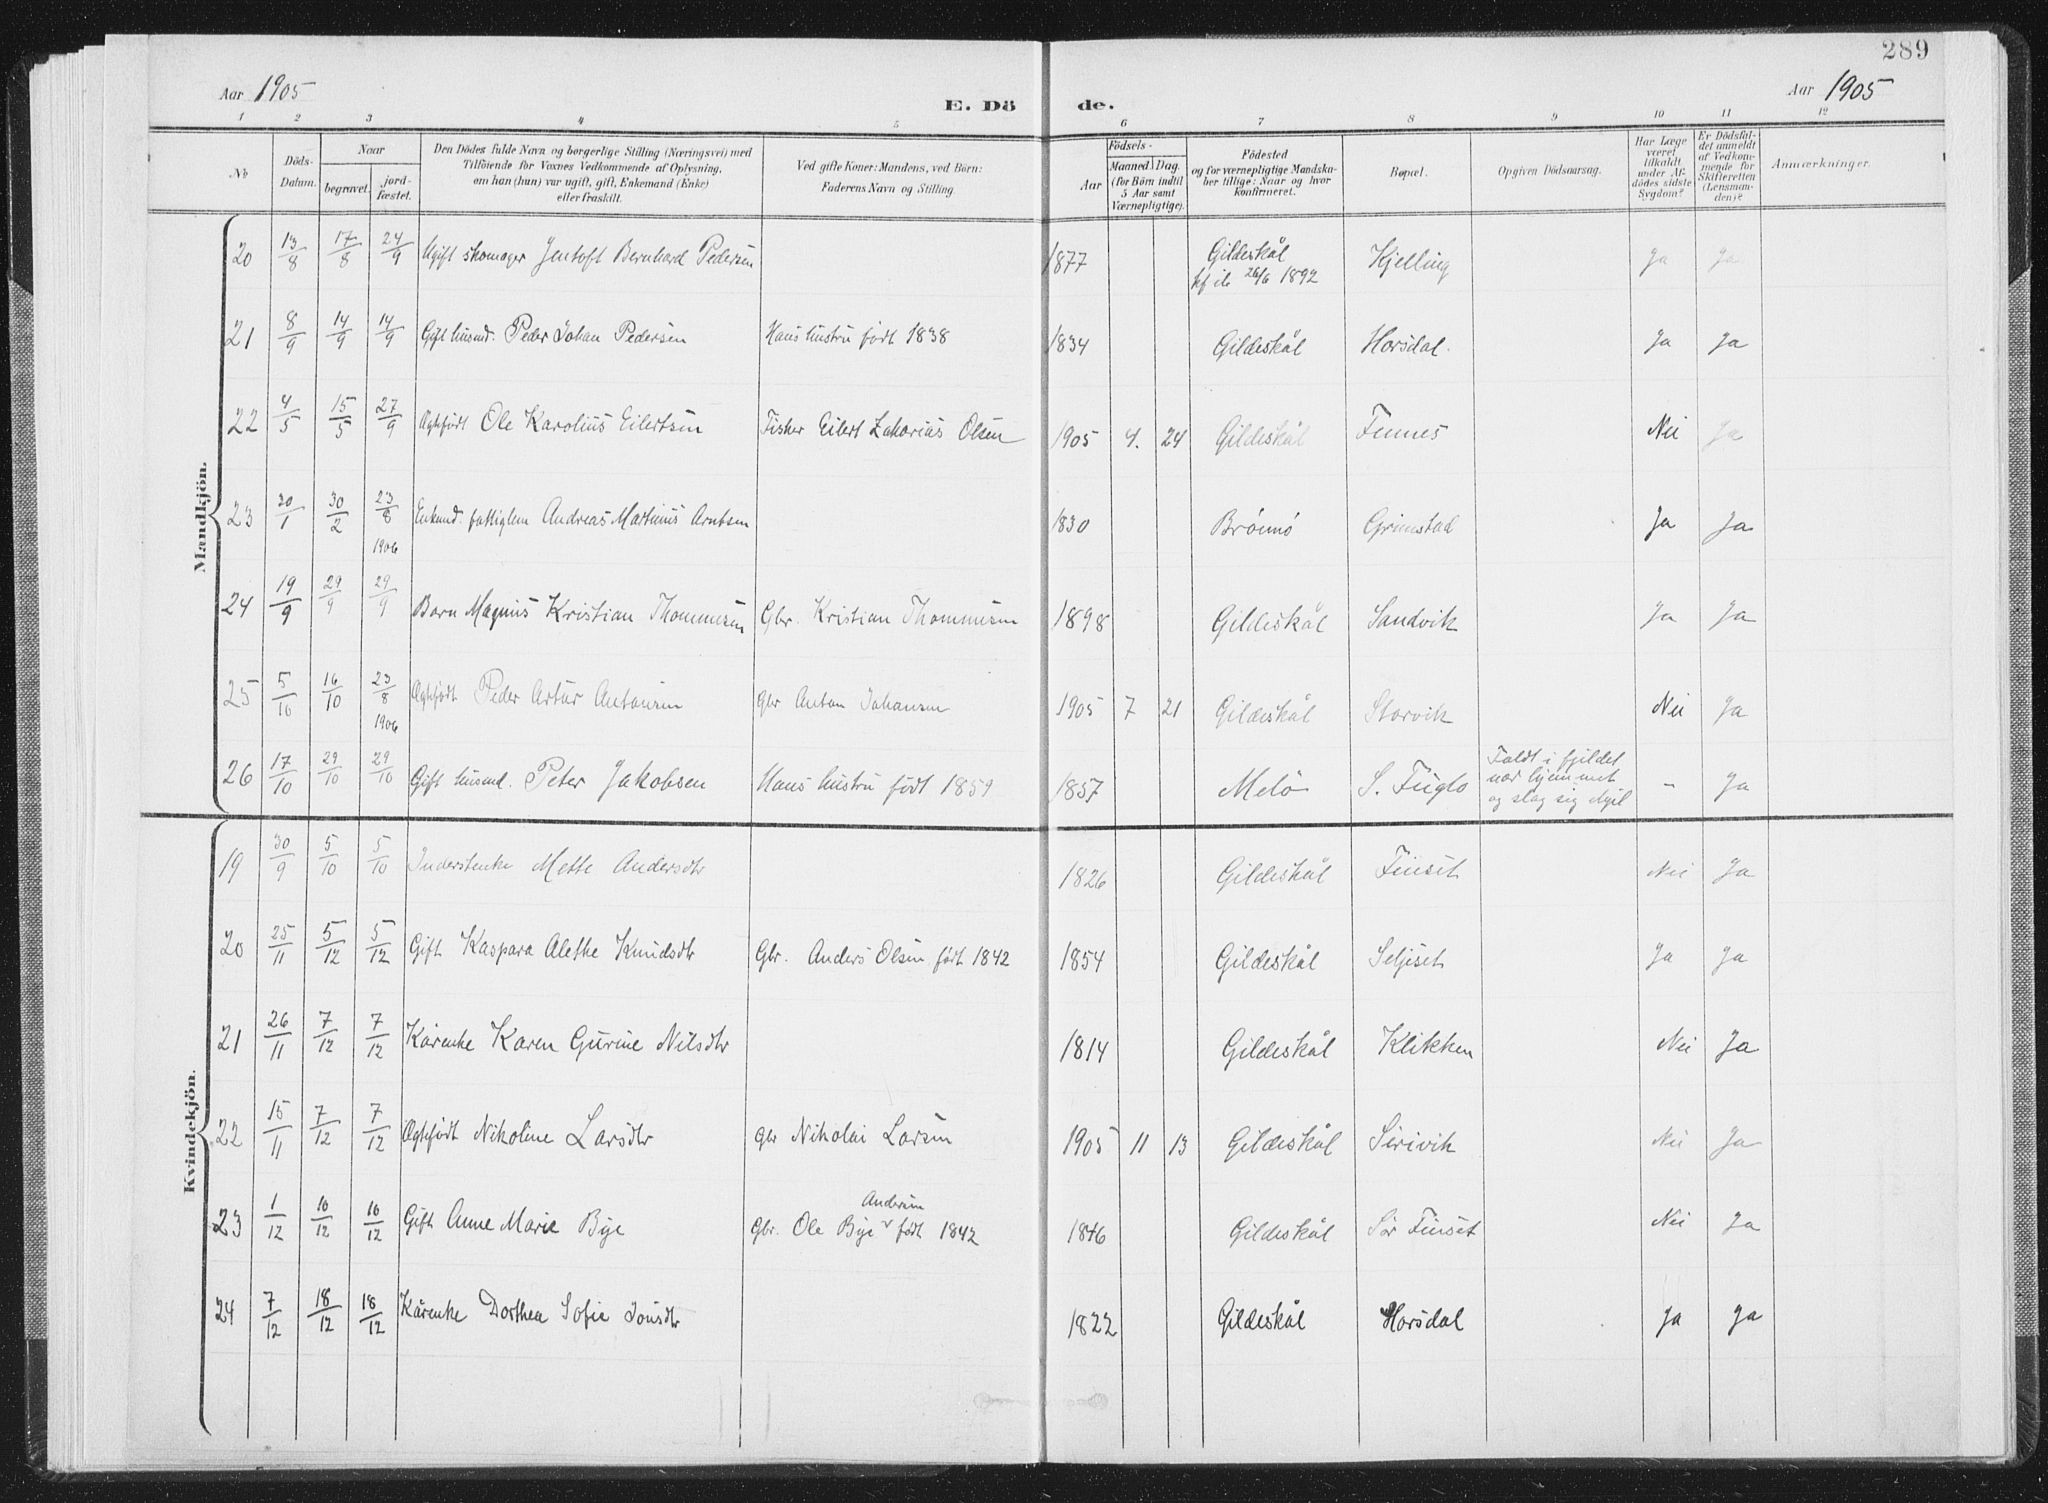 289
Aar 1905
E. Dö de.
Aar 1905
1 2 3 4 5 6 7 8 9 10 11 12
No
Döds-Datum.
Naar
begravet.
jord-fæstet.
Den Dödes fulde Navn og borgerlige Stilling (Næringsvei) med
Tilföiende for Voxnes Vedkommende af Oplysning,
om han (hun) var ugift, gift, Enkemand (Enke)
eller fraskilt.
Ved gifte Koner: Mandens, ved Börn:
Faderens Navn og Stilling.
Födsels-
Aar
Maaned. Dag.
(for Börn indtil
5 Aar samt
Værnepligtige).
Födested
og for værnepligtige Mandska-
ber tillige: Naar og hvor
konfirmeret.
Bopæl.
Opgiven Dödsaarsag.
Har Læge
været
tilkaldt
under Af-
dödes sidste
Sygdom?
Er Dödsfal-
det anmeldt
af Vedkom-
mende for
Skifteretten
(Lensman-
den)?
Anmærkninger.
Mandkjön.
20 13/8 17/8 24/9 Ugift skomager Jentoft Bernhard Pedersen 1877 Gildeskål Kjelling Ja Ja
26/6 1892
21 8/9 14/9 14/9 Gift husmd. Peder Johan Pedersen Hans hustru født 1838 1834 Gildeskål Horsdal. Ja Ja
22 4/5 15/5 27/9 Ægtefødt Ole Karolius Eilertsen Fisker Eilert Zakarias Olsen 1905 4. 24 Gildeskål Finnes Nei Ja
23 20/1 30/2 23/8 1906 Enkemd. fattiglem Andreas Martinus Arntsen 1830 Brönnö Grimstad Ja Ja
24 19/9 29/9 29/9 Barn Magnus Kristian Thommesen Gbr. Kristian Thommesen 1898 Gildeskål Sandvik Ja Ja
25 5/10 16/10 23/8 1906 Ægtefødt Peder Artur Antonsen Gbr Anton Johansen 1905 7 21 Gildeskål Storvik Nei Ja
26 17/10 29/10 29/10 Gift husmd. Peter Jakobsen Hans hustru født 1859 1857 Melö S. Fuglö Faldt i fjeldet
nær hjemmet
og slog sig ihjel - Ja
Kvindekjön.
19 30/9 5/10 5/10 Inderstenke Mette Andersdtr 1826 Gildeskål Finset Nei Ja
20 25/11 5/12 5/12 Gift Kaspara Alethe Knudsdtr Gbr. Anders Olsen født 1842 1854 Gildeskål Seljeset Ja Ja
21 26/11 7/12 7/12 Kårenke Karen Gurine Nilsdtr 1814 Gildeskål Klikken Nei Ja
22 15/11 7/12 7/12 Ægtefødt Nikoline Larsdtr Gbr Nikolai Larsen 1905 11 13 Gildeskål Sirivik Nei Ja
Andersen
23 1/12 10/12 10/12 Gift Anne Marie Bye Gbr. Ole Bye født 1842 1846 Gildeskål Sør Finset Nei Ja
24 7/12 18/12 18/12 Kårenke Dorthea Sofie Jonsdtr 1822 Gildeskål Horsdal Ja Ja